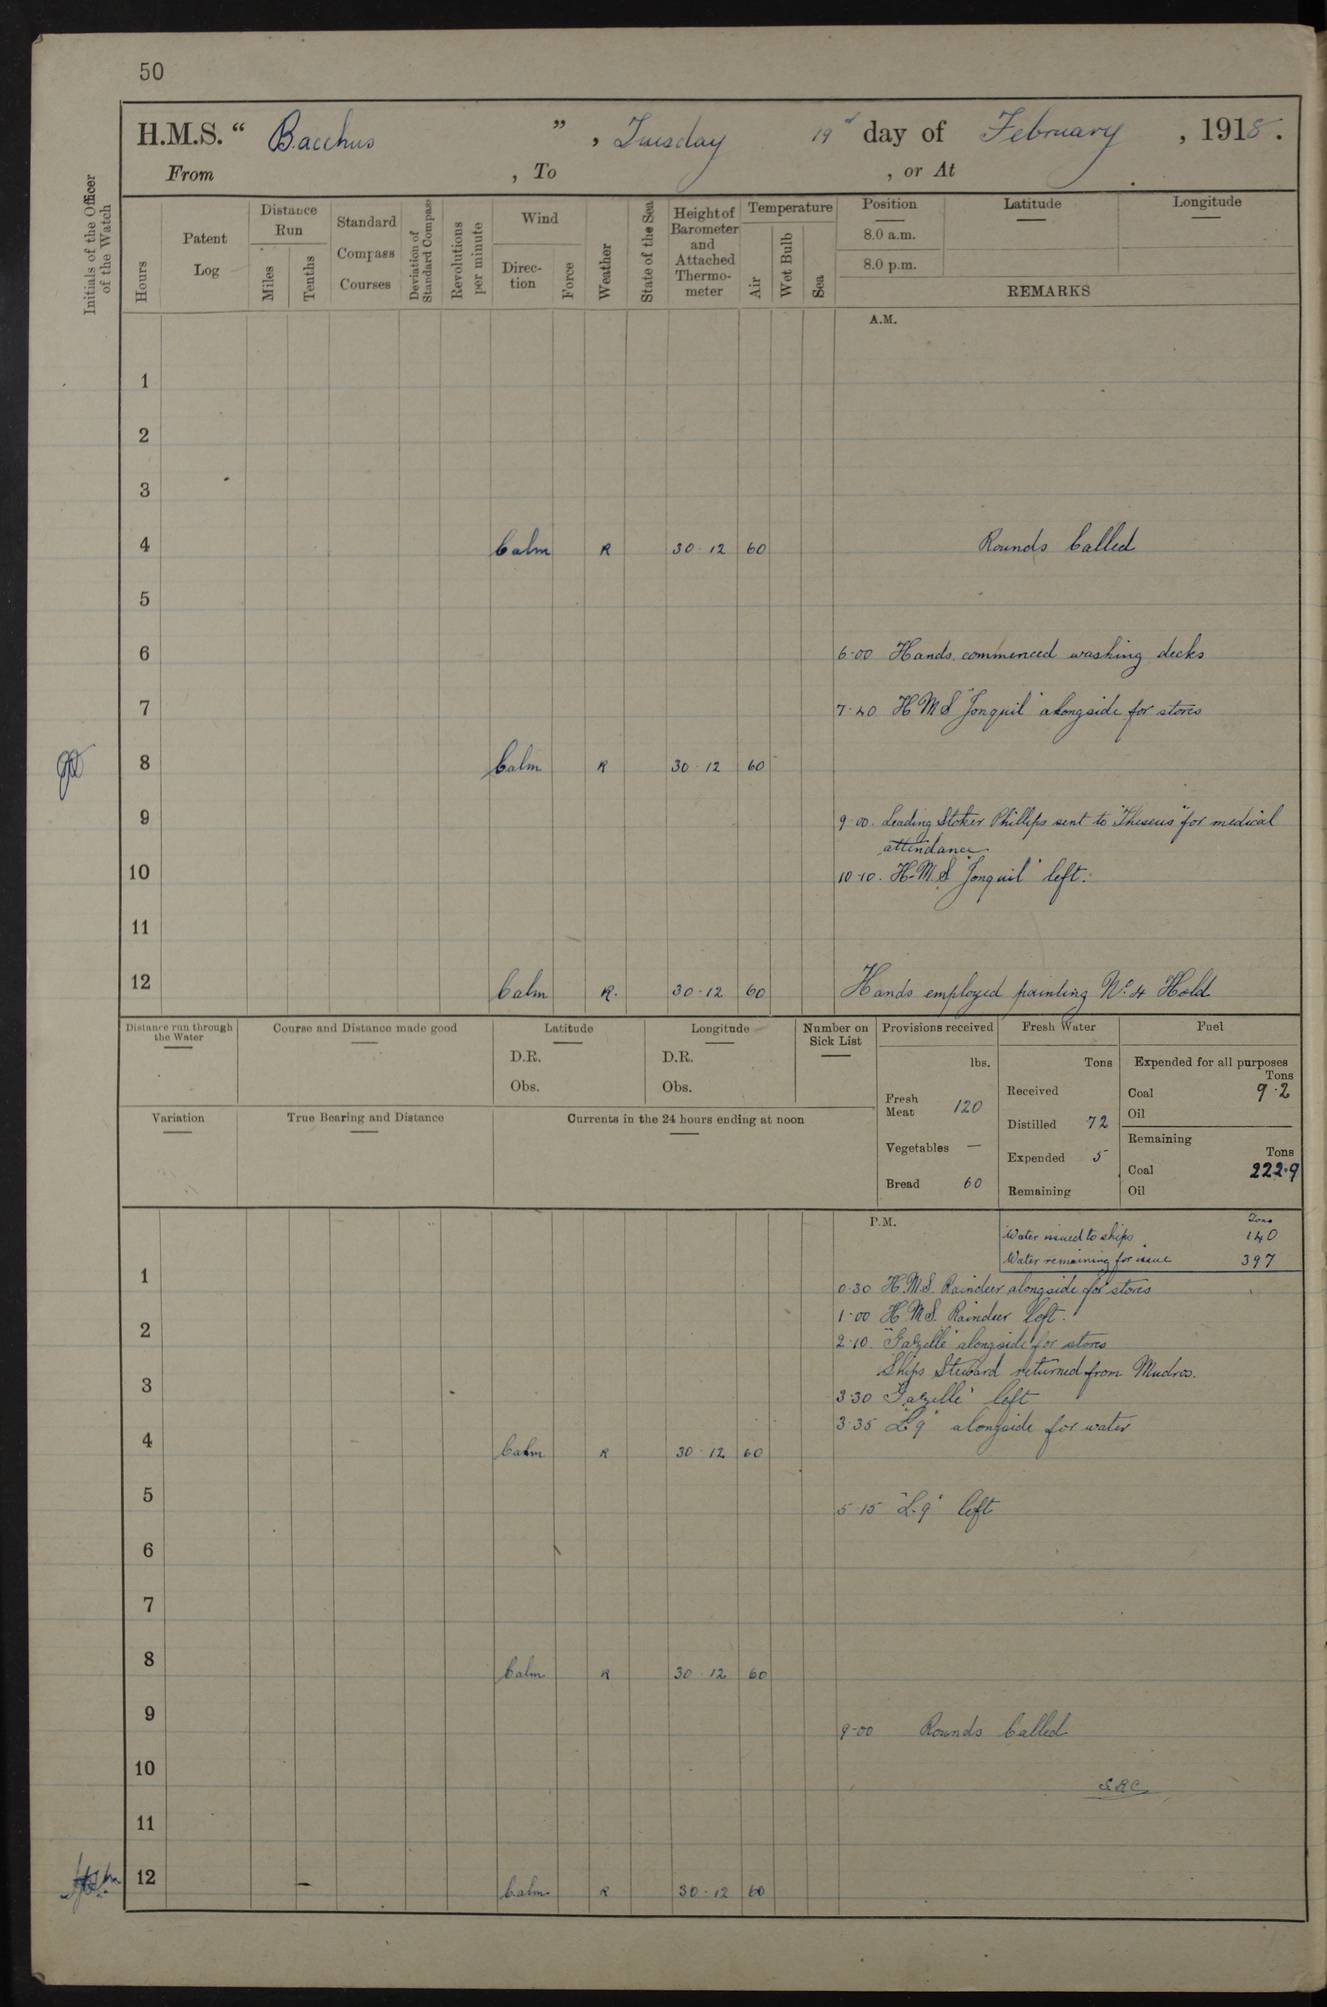 50
H.M.S. “ Bacchus ”, Tuesday 19 day of February, 1918.
From , To , or At
Initials of the Officer of the Watch
Hours
Patent Log
Distance Run
Miles
Tenths
Standard Compass Courses
Deviation of Standard Compass
Revolutions per minute
Wind
Direction
Force
Weather
State of the Sea
Height of Barometer and Attached Thermometer
Temperature
Air
Wet Bulb
Sea
Position
8.0 a.m.
8.0 p.m.
Latitude
Longitude
REMARKS
A.M.
1
2
3
4 Calm R 30·12 60 Rounds Called
5
6 6·00 Hands commenced washing decks
7 7·40 H M S "Jonquil" alongside for stores
8 Calm R 30·12 60
9 9·00. Leading Stoker Phillips sent to "Theseus" for medical
attendance
10 10·10. H.M.S "Jonquil" left.
11
12 Calm R. 30·12 60 Hands employed painting No. 4 Hold
Distance run through the Water
Course and Distance made good
Latitude
D.R.
Obs.
Longitude
D.R.
Obs.
Number on Sick List
Variation
True Bearing and Distance
Currents in the 24 hours ending at noon
Provisions received
lbs.
Fresh Meat 120
Vegetables —
Bread 60
Fresh Water
Tons
Received
Distilled 72
Expended 5
Remaining
Fuel
Expended for all purposes
Tons
Coal 9·2
Oil
Remaining
Tons
Coal 222·9
Oil
P.M.
Tons
Water issued to ships 140
Water remaining for issue 397
1 0·30 H.M.S. Raindeer alongside for stores
1·00 H.M.S. Raindeer left.
2 2·10. "Gazelle" alongside for stores
Ships Steward returned from Mudros.
3 3·30 Gazelle" left
3·35 "L9" alongside for water
4 Calm R 30·12 60
5 5·15 "L.9" left
6
7
8 Calm R 30·12 60
9 9·00 Rounds Called
10
11
12 Calm R 30·12 60